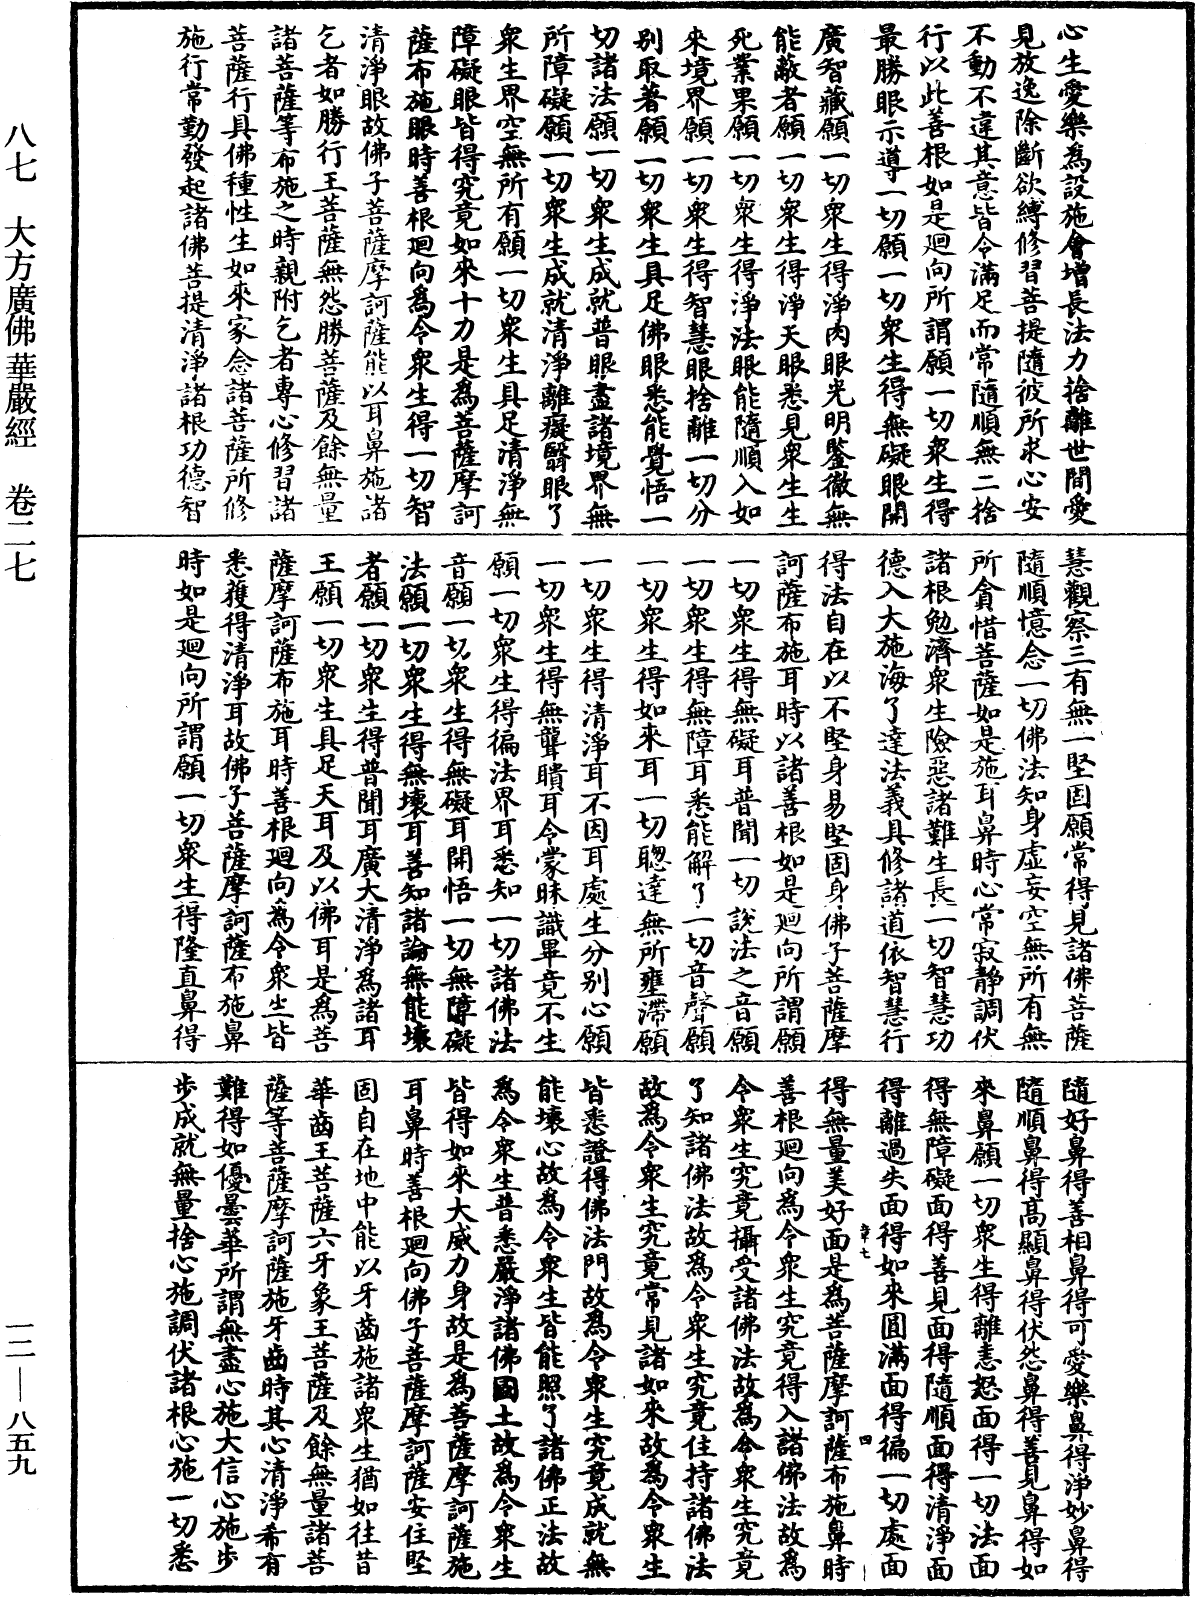 心生愛樂為設施會增長法力捨離世間愛
見放逸除斷欲縛修習菩提隨彼所求心安
不動不違其意皆令滿足而常隨順無二捨
行以此善根如是迴向所謂願一切衆生得
最勝眼示導一切願一切衆生得無礙眼開
廣智藏願一切衆生得淨肉眼光明鑒徹無
能蔽者願一切衆生得淨天眼悉見衆生生
死業果願一切衆生得淨法眼能隨順入如
來境界願一切衆生得智慧眼捨離一切分
別取著願一切衆生具足佛眼悉能覺悟一
切諸法願一切衆生成就普眼盡諸境界無
所障礙願一切衆生成就清淨離癡翳眼了
衆生界空無所有願一切衆生具足清淨無
障礙眼皆得究竟如來十力是為菩薩摩訶
薩布施眼時善根迴向為令衆生得一切智
清淨眼故佛子菩薩摩訶薩能以耳鼻施諸
乞者如勝行王菩薩無怨勝菩薩及餘無量
諸菩薩等布施之時親附乞者專心修習諸
菩薩行具佛種性生如來家念諸菩薩所修
施行常勤發起諸佛菩提清淨諸根功德智
慧觀察三有無一堅固願常得見諸佛菩薩
隨順憶念一切佛法知身虛妄空無所有無
所貪惜菩薩如是施耳鼻時心常寂靜調伏
諸根勉濟衆生險惡諸難生長一切智慧功
德入大施海了達法義具修諸道依智慧行
得法自在以不堅身易堅固身佛子菩薩摩
訶薩布施耳時以諸善根如是迴向所謂願
一切衆生得無礙耳普聞一切說法之音願
一切衆生得無障耳悉能解了一切音聲願
一切衆生得如來耳一切聰達無所壅滯願
一切衆生得清淨耳不因耳處生分別心願
一切衆生得無聾聵耳令蒙昧識畢竟不生
願一切衆生得徧法界耳悉知一切諸佛法
音願一切衆生得無礙耳開悟一切無障礙
法願一切衆生得無壞耳善知諸論無能壞
者願一切衆生得普聞耳廣大清淨為諸耳
王願一切衆生具足天耳及以佛耳是為菩
薩摩訶薩布施耳時善根迴向為令衆生皆
悉獲得清淨耳故佛子菩薩摩訶薩布施鼻
時如是迴向所謂願一切衆生得隆直鼻得
隨好鼻得善相鼻得可愛樂鼻得淨妙鼻得
隨順鼻得高顯鼻得伏怨鼻得善見鼻得如
來鼻願一切衆生得離恚怒面得一切法面
得無障礙面得善見面得隨順面得清淨面
得離過失面得如來圓滿面得徧一切處面
得無量美好面是為菩薩摩訶薩布施鼻時
善根迴向為令衆生究竟得入諸佛法故為
令衆生究竟攝受諸佛法故為令衆生究竟
了知諸佛法故為令衆生究竟住持諸佛法
故為令衆生究竟常見諸如來故為令衆生
皆悉證得佛法門故為令衆生究竟成就無
能壞心故為令衆生皆能照了諸佛正法故
為令衆生普悉嚴淨諸佛國土故為令衆生
皆得如來大威力身故是為菩薩摩訶薩施
耳鼻時善根迴向佛子菩薩摩訶薩安住堅
固自在地中能以牙齒施諸衆生猶如往昔
華齒王菩薩六牙象王菩薩及餘無量諸菩
薩等菩薩摩訶薩施牙齒時其心清淨希有
難得如優曇華所謂無盡心施大信心施步
步成就無量捨心施調伏諸根心施一切悉
八七　大方廣佛華嚴經　卷二七
一二—八五九